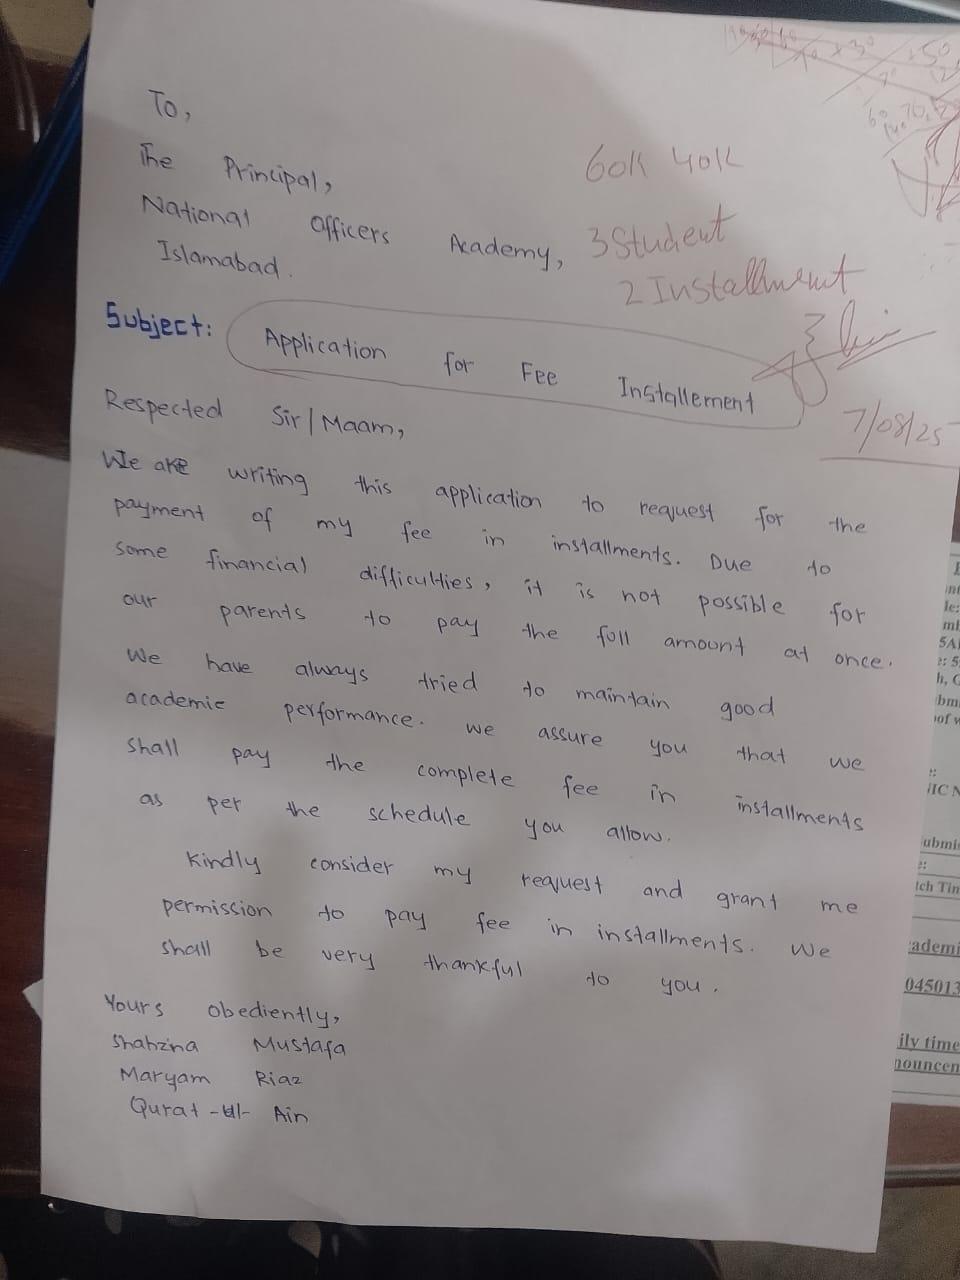 To,
The Principal,
National Officers Academy,
Islamabad.
60K 40K
3 Student
2 Installment
7/08/25
Subject: Application for Fee Installement
Respected Sir/Maam,
We are writing this application to request for the
payment of my fee in installments. Due to
some financial difficulties, it is not possible for
our parents to pay the full amount at once.
We have always tried to maintain good
academic performance. We assure you that we
shall pay the complete fee in installments
as per the schedule you allow.
Kindly consider my request and grant me
permission to pay fee in installments. We
shall be very thankful to you.
Yours obediently,
Shahzina Mustafa
Maryam Riaz
Qurat-ul-Ain
045013
ily time
nouncem